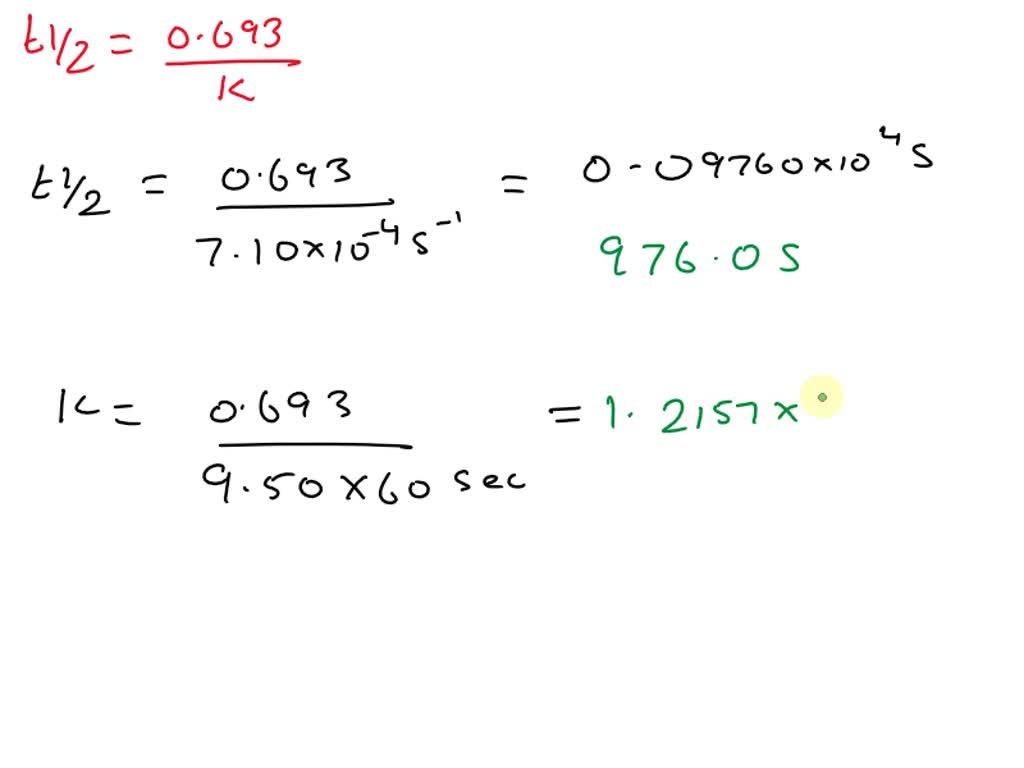 t1/2 = 0.693 / K
t1/2 = 0.693 / 7.10×10⁻⁴ s⁻¹ = 0.09760×10⁴ s
976.0 s
K = 0.693 / 9.50×60 sec = 1.2157×